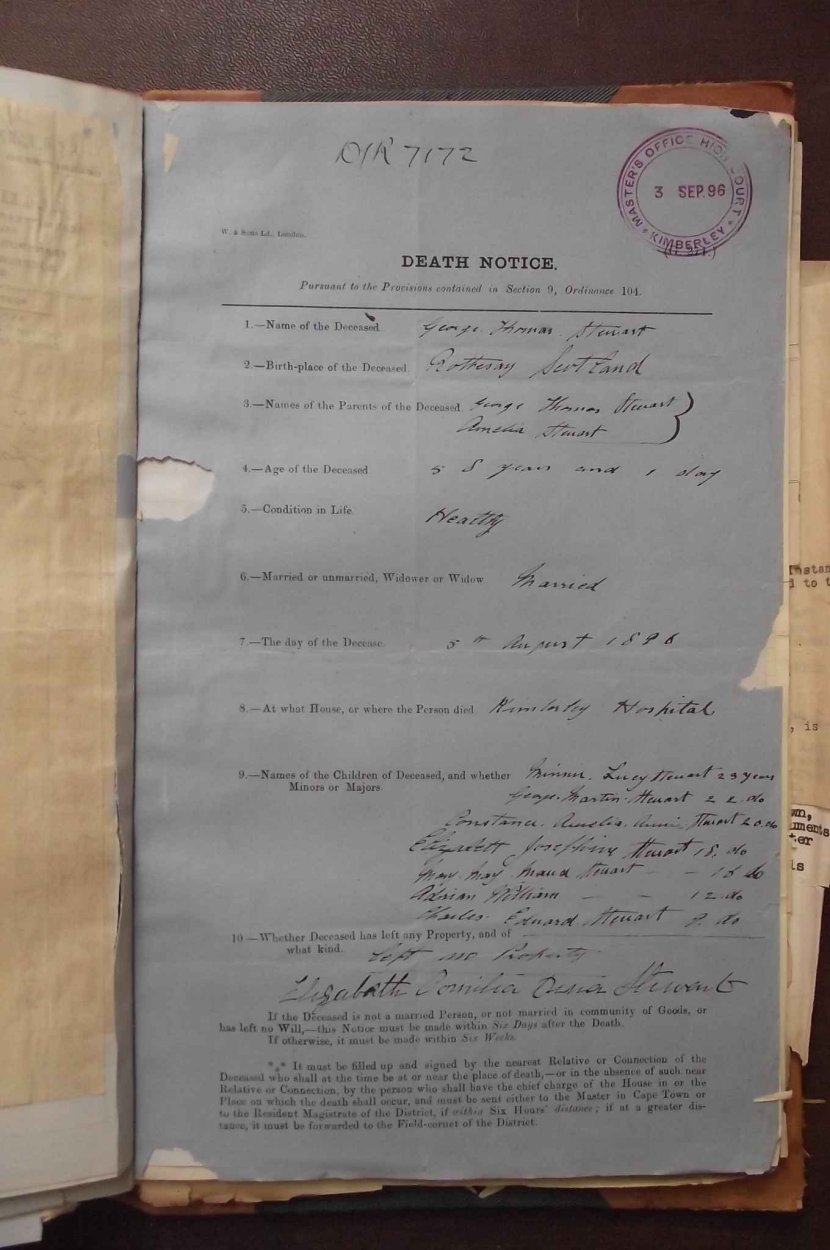 D/R 7172
MASTER'S OFFICE HIGH COURT
3 SEP. 96
KIMBERLEY
W. & Sons Ld., London.
DEATH NOTICE.
Pursuant to the Provisions contained in Section 9, Ordinance 104.
1.—Name of the Deceased George Thomas Stewart
2.—Birth-place of the Deceased Rothesay Scotland
3.—Names of the Parents of the Deceased George Thomas Stewart
Amelia Stewart
4.—Age of the Deceased 58 years and 1 day
5.—Condition in Life. Healthy
6.—Married or unmarried, Widower or Widow Married
7.—The day of the Decease. 5th August 1896
8.—At what House, or where the Person died Kimberley Hospital
9.—Names of the Children of Deceased, and whether Lucy Stewart 23 years
Minors or Majors.
George Martin Stewart 22 do
Constance Amelia Annie Stewart 20 do
Elizabeth Josephine Stewart 18 do
May Maud Stewart — — do
Adrian William — — 12 do
Charles Edward Stewart 9 do
10—Whether Deceased has left any Property, and of
what kind. Left no Property
Elizabeth Stewart
If the Deceased is not a married Person, or not married in community of Goods, or
has left no Will,—this Notice must be made within Six Days after the Death.
If otherwise, it must be made within Six Weeks.
*⁎* It must be filled up and signed by the nearest Relative or Connection of the
Deceased who shall at the time be at or near the place of death,—or in the absence of such near
Relative or Connection, by the person who shall have the chief charge of the House in or the
Place on which the death shall occur, and must be sent either to the Master in Cape Town or
to the Resident Magistrate of the District, if within Six Hours' distance; if at a greater dis-
tance, it must be forwarded to the Field-cornet of the District.